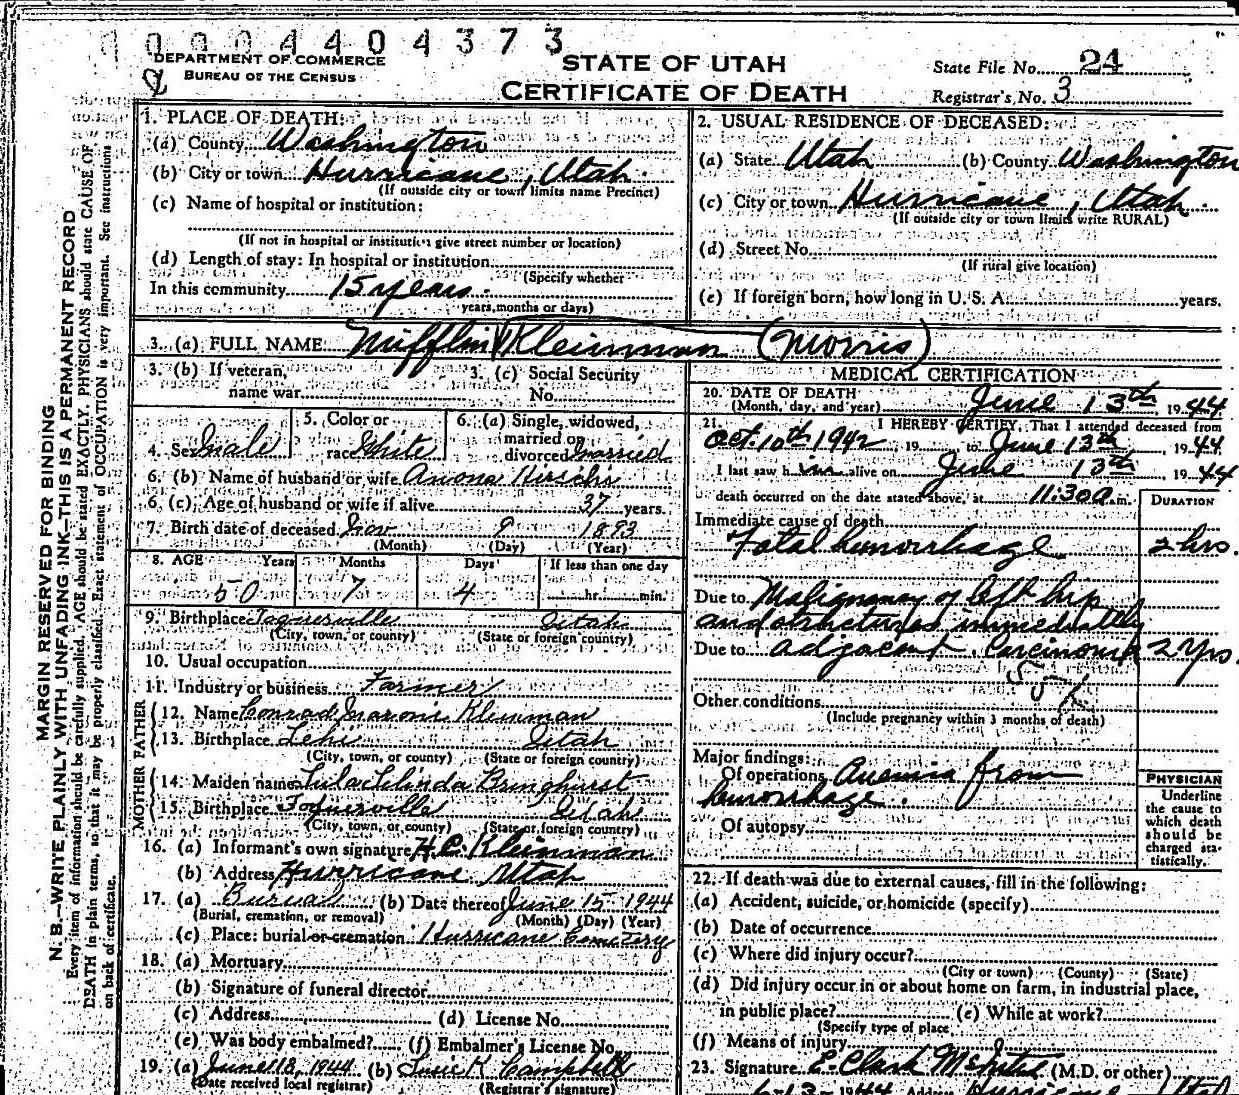 0004404373
DEPARTMENT OF COMMERCE
BUREAU OF THE CENSUS
STATE OF UTAH
CERTIFICATE OF DEATH
State File No. 24
Registrar's No. 3
MARGIN RESERVED FOR BINDING
N. B.—WRITE PLAINLY WITH UNFADING INK—THIS IS A PERMANENT RECORD
Every item of information should be carefully supplied. AGE should be stated EXACTLY. PHYSICIANS should state CAUSE OF
DEATH in plain terms, so that it may be properly classified. Exact statement of OCCUPATION is very important. See instructions
on back of certificate.
1. PLACE OF DEATH:
(a) County Washington
(b) City or town Hurricane, Utah
(If outside city or town limits name Precinct)
(c) Name of hospital or institution:
(If not in hospital or institution give street number or location)
(d) Length of stay: In hospital or institution
(Specify whether
In this community 15 years.
years, months or days)
2. USUAL RESIDENCE OF DECEASED:
(a) State Utah (b) County Washington
(c) City or town Hurricane, Utah.
(If outside city or town limits write RURAL)
(d) Street No.
(If rural give location)
(e) If foreign born, how long in U. S. A. years.
3. (a) FULL NAME Mifflin Kleinman (Morris)
3. (b) If veteran,
name war
3. (c) Social Security
No.
4. Sex Male
5. Color or
race White
6. (a) Single, widowed,
married or
divorced Married
6. (b) Name of husband or wife Anona Hirschi
6. (c) Age of husband or wife if alive 37 years.
7. Birth date of deceased Nov 9 1893
(Month) (Day) (Year)
8. AGE Years Months Days If less than one day
50 7 4 hr. min.
9. Birthplace Toquerville Utah
(City, town, or county) (State or foreign country)
10. Usual occupation
11. Industry or business Farmer
FATHER
12. Name Conrad Maroni Kleinman
13. Birthplace Lehi Utah
(City, town, or county) (State or foreign country)
MOTHER
14. Maiden name Lula Selinda Bringhurst
15. Birthplace Toquerville Utah
(City, town, or county) (State or foreign country)
16. (a) Informant's own signature H.C. Kleinman
(b) Address Hurricane Utah
17. (a) Burial (b) Date thereof June 15 1944
(Burial, cremation, or removal) (Month) (Day) (Year)
(c) Place: burial or cremation Hurricane Cemetery
18. (a) Mortuary
(b) Signature of funeral director
(c) Address (d) License No.
(e) Was body embalmed? (f) Embalmer's License No.
19. (a) June 18, 1944 (b) Susie K Campbell
(Date received local registrar) (Registrar's signature)
MEDICAL CERTIFICATION
20. DATE OF DEATH
(Month, day, and year) June 13th, 1944
21. I HEREBY CERTIFY, That I attended deceased from
Oct. 10th 1942, 19 to June 13th, 1944
I last saw him alive on June 13th 1944
death occurred on the date stated above, at 11:30a.m.
DURATION
Immediate cause of death
Fatal hemorrhage 2 hrs.
Due to Malignancy of left hip
and structures immediately
Due to adjacent. Carcinoma 2 yrs.
Other conditions
(Include pregnancy within 3 months of death)
Major findings:
Of operations Anemia from
hemorrhage.
Of autopsy
PHYSICIAN
Underline
the cause to
which death
should be
charged sta-
tistically.
22. If death was due to external causes, fill in the following:
(a) Accident, suicide, or homicide (specify)
(b) Date of occurrence
(c) Where did injury occur?
(City or town) (County) (State)
(d) Did injury occur in or about home on farm, in industrial place,
in public place? (e) While at work?
(Specify type of place
(f) Means of injury
23. Signature E. Clark McIntire (M.D. or other)